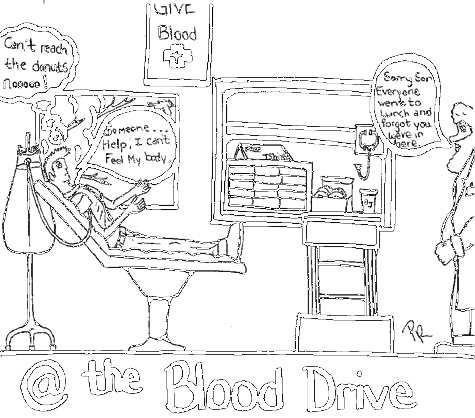 GIVE
Blood
Can't reach
the donuts
Nooooo!
Someone...
Help, I can't
Feel My body.
Sorry Son
Everyone
went to
Lunch and
forgot you
were in
here.
PR
@ the Blood Drive